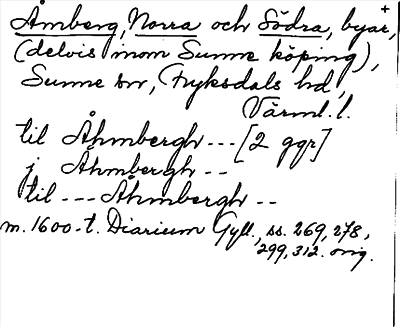 Åmberg, Norra och Södra, byar,+
(delvis inom Sunne köping),
Sunne sn, Fryksdals hd,
Värml. l.
til Åhmbergh --- [2 ggr]
j Åhmbergh --
til --- Åhmbergh --
m. 1600-t. Diarium Gyll., ss. 269, 278,
299, 312. orig.